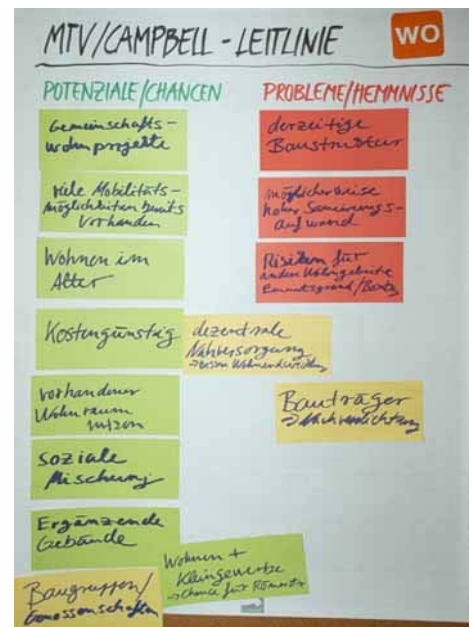 MTV/CAMPBELL - LEITLINIE
WO
POTENZIALE/CHANCEN
PROBLEME/HEMMNISSE
Gemeinschafts-
wohnprojekte
viele Mobilitäts-
möglichkeiten bereits
vorhanden
Wohnen im
Alter
Kostengünstig
vorhandener
Wohnraum
nutzen
soziale
Mischung
Ergänzende
Gebäude
Baugruppen/
Genossenschaften
Wohnen +
Kleingewerbe
Chance für
dezentrale
Nahversorgung
derzeitige
Baustruktur
möglicherweise
hoher Sanierungs-
aufwand
Risiken für
andere Wohngebiete
Emmertsgrund/
Bauträger
Nachverdichtung